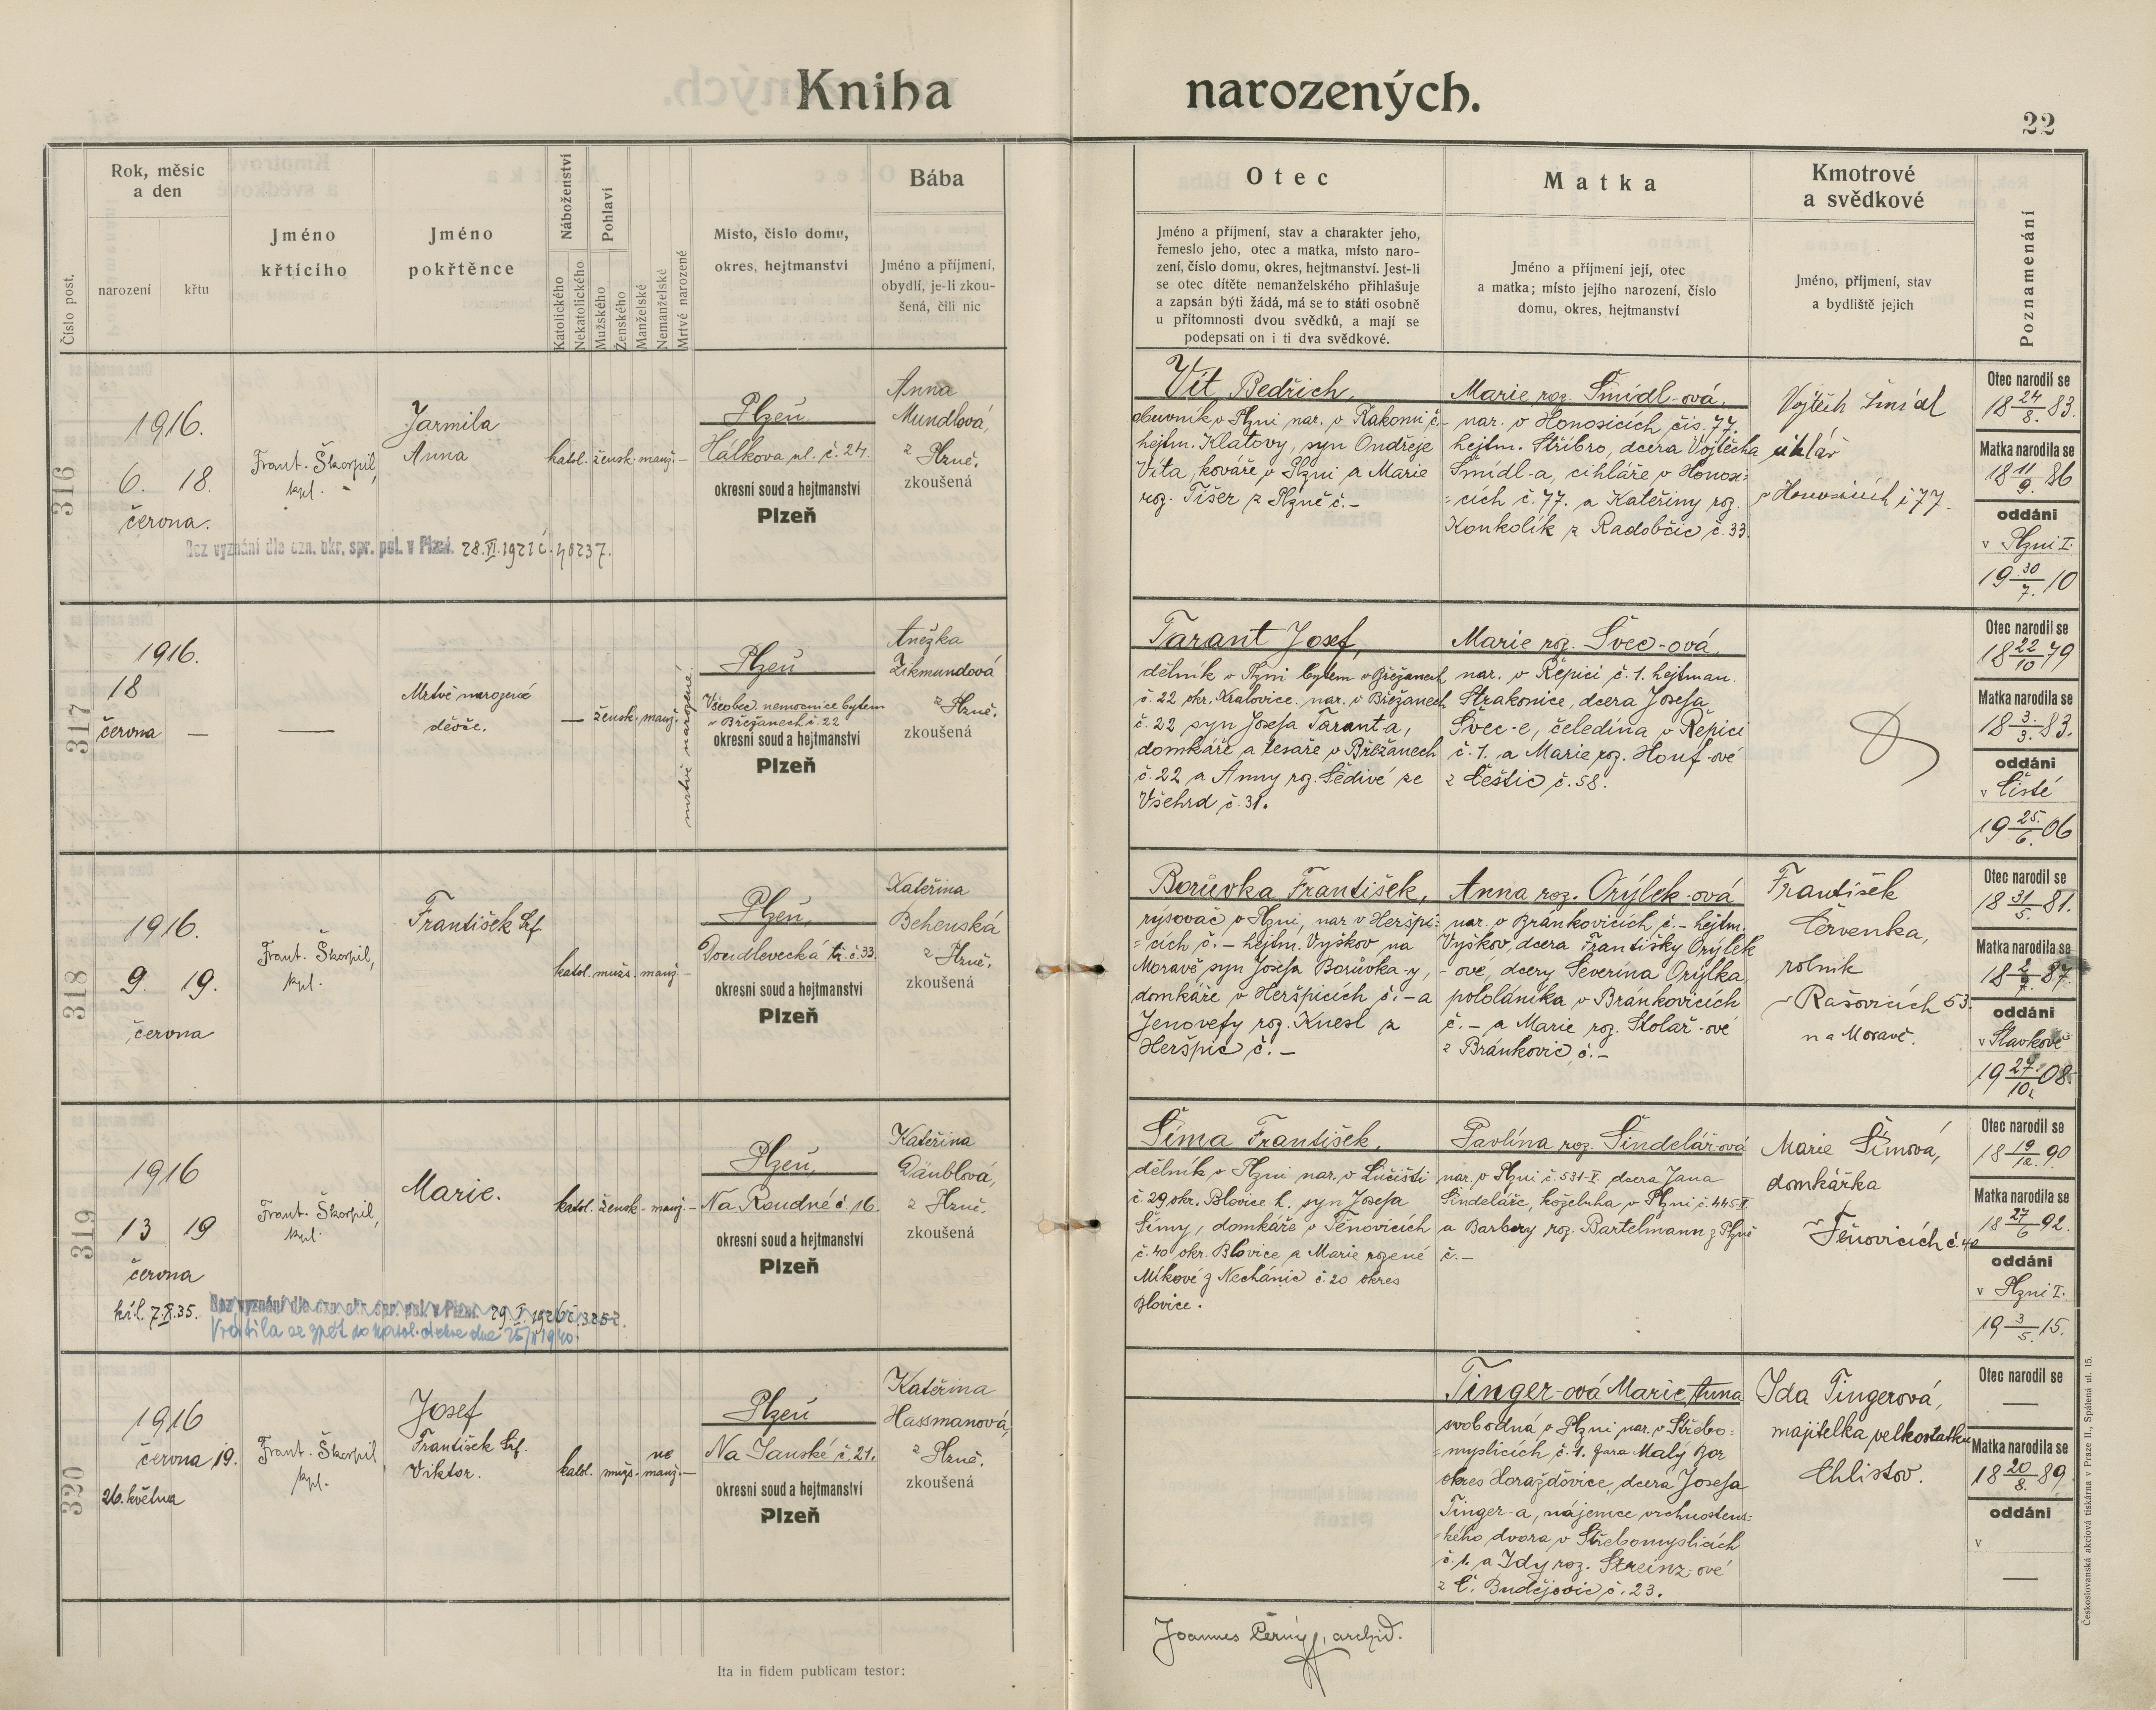 Kniha narozených.
22
Číslo post.
Rok, měsíc
a den
narození
křtu
Jméno
křtícího
Jméno
pokřtěnce
Náboženství
Katolického
Nekatolického
Pohlaví
Mužského
Ženského
Manželské
Nemanželské
Mrtvé narozené
Místo, číslo domu,
okres, hejtmanství
Bába
Jméno a příjmení,
obydlí, je-li zkou-
šená, čili nic
Otec
Jméno a příjmení, stav a charakter jeho,
řemeslo jeho, otec a matka, místo naro-
zení, číslo domu, okres, hejtmanství. Jest-li
se otec dítěte nemanželského přihlašuje
a zapsán býti žádá, má se to státi osobně
u přítomnosti dvou svědků, a mají se
podepsati on i ti dva svědkové.
Matka
Jméno a příjmení její, otec
a matka; místo jejího narození, číslo
domu, okres, hejtmanství
Kmotrové
a svědkové
Jméno, příjmení, stav
a bydliště jejich
Poznamenání
316
1916.
6. 18.
června.
Frant. Škorpil,
kpl.
Jarmila
Anna
katol. žensk. manž. —
Plzeň
Hálkova ul. č. 24.
okresní soud a hejtmanství
Plzeň
Anna
Mundlová,
z Plzně.
zkoušená
Bez vyznání dle ozn. okr. spr. pol. v Plzni. 28.VI.1921 č. 40237.
Vít Bedřich,
obuvník v Plzni nar. v Rakomi č.-
hejtm. Klatovy, syn Ondřeje
Víta, kováře v Plzni a Marie
roz. Tišer z Plzně č. -
Marie roz. Šmídl-ová.
nar. v Honosicích čís. 77.
hejtm. Stříbro, dcera Vojtěcha
Šmídl-a, cihláře v Honosi=
=cích č. 77. a Kateřiny roz.
Konkolík z Radobčic č. 33.
Vojtěch Šmídl
cihlář
v Honosicích č 77.
Otec narodil se
18 24/8. 83.
Matka narodila se
18 11/9. 86
oddáni
v Plzni I.
19 30/7. 10
317
1916.
18
června —
—
Mrtvě narozené
děvče.
— žensk. manž.
mrtvě narozené.
Plzeň
Všeobec. nemocnice bytem
v Břežanech č. 22
okresní soud a hejtmanství
Plzeň
Anežka
Zikmundová
z Plzně.
zkoušená
Tarant Josef,
dělník v Plzni bytem v Břežanech
č. 22 okr. Kralovice. nar. v Břežanech
č. 22 syn Josefa Tarant-a,
domkáře a tesaře v Břežanech
č. 22 a Anny roz. Šedivé ze
Všehrd č. 31.
Marie roz. Švec-ová.
nar. v Řepici č. 1. hejtman.
Strakonice, dcera Josefa
Švec-e, čeledína v Řepici
č. 1. a Marie roz. Houf-ové
z Češtic č. 58.
Otec narodil se
18 22/10 79
Matka narodila se
18 3./3. 83.
oddáni
v Čisté
19 25./6. 06
318
1916.
9. 19.
června
Frant. Škorpil,
kpl.
František Srf.
katol. mužs. manž. —
Plzeň,
Doudlevecká tř. č. 33.
okresní soud a hejtmanství
Plzeň
Kateřina
Behenská
z Plzně.
zkoušená
Borůvka František,
rýsovač v Plzni, nar v Heršpi-
=cích č. – hejtm. Vyškov na
Moravě syn Josefa Borůvka-y,
domkáře v Heršpicích č. – a
Jenovefy roz. Knesl z
Heršpic č. –
Anna roz. Orýlek-ová
nar. v Bránkovicích č. – hejtm.
Vyškov, dcera Františky Orýlek
-ové, dcery Severina Orýlka
pololáníka v Bránkovicích
č. – a Marie roz. Stolař-ové
z Bránkovic, č. –
František
Červenka,
rolník
v Rašovicích 53.
na Moravě.
Otec narodil se
18 31/5. 81.
Matka narodila se
oddáni
v Slavkově
19 27./10. 08.
319
1916
13 19
června
Frant. Škorpil,
kpl.
Marie.
katol. žensk. manž. –
Plzeň,
Na Roudné č. 16.
okresní soud a hejtmanství
Plzeň
Kateřina
Däublová,
z Plzně.
zkoušená
Bez vyznání dle ozn. okr. spr. pol. v Plzni. 29.I.1926 č. 3252.
Vrátila se zpět do katol. církve dne
Šíma František,
dělník v Plzni nar. v Lučišti
č. 29 okr. Blovice h. syn Josefa
Šímy, domkáře v Těnovicích
č. 40 okr. Blovice a Marie rozené
Míkové z Nechánic č. 20 okres
Blovice.
Pavlína roz. Šindelář-ová
nar. v Plzni č. 531-V. dcera Jana
Šindeláře, koželuha v Plzni č. 445-II
a Barbory roz. Bartelmann z Plzně
č. –
Marie Šímová,
domkářka
v Těnovicích č. 40
Otec narodil se
18 19/12. 90
Matka narodila se
18 27/6 92.
oddáni
v Plzni I.
19 3/5. 15.
320
1916
června 19.
26. května
Frant. Škorpil,
kpl.
Josef
František Srf.
Viktor.
katol. mužs. ne
manž. —
Plzeň
Na Janské č. 21.
okresní soud a hejtmanství
Plzeň
Kateřina
Hassmanová,
z Plzně.
zkoušená
Tinger-ová Marie Anna
svobodná v Plzni nar. v Střebo=
=myslicích č. 1. fara Malý Bor
okres Horažďovice, dcera Josefa
Tinger-a, nájemce vrchnosten=
=kého dvora v Střebomyslicích
č. 1. a Idy roz. Streinz-ové
z Č. Budějovic č. 23.
Ida Tingerová,
majitelka velkostatku
Chlistov.
Otec narodil se
—
Matka narodila se
18 20/8. 89.
oddáni
v
—
Ita in fidem publicam testor:
Joannes Černý, archid.
Československá akciová tiskárna v Praze II., Spálená ul. 15.